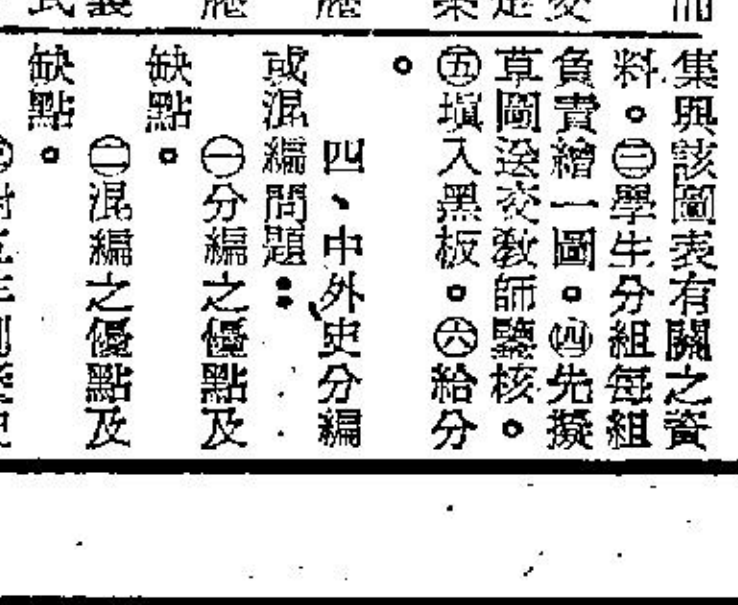 集與該圖表有關之資
料。㊂學生分組每組
負責繪一圖。㊃先擬
草圖送交教師鑒核。
㊄塡入黑板。㊅給分
。
四、中外史分編
或混編問題：
㊀分編之優點及
缺點。
㊁混編之優點及
缺點。